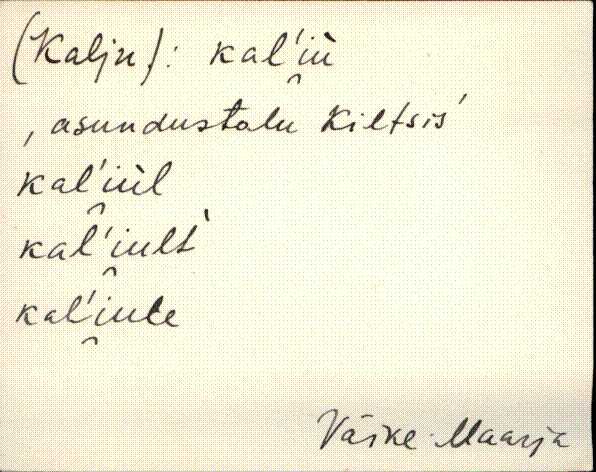 (Kalju): kal'i̯ù
, asundustalu Kiltsis'
kal'i̯ùl
kal'i̯ult̀
kal'i̯ule
Väike-Maarja